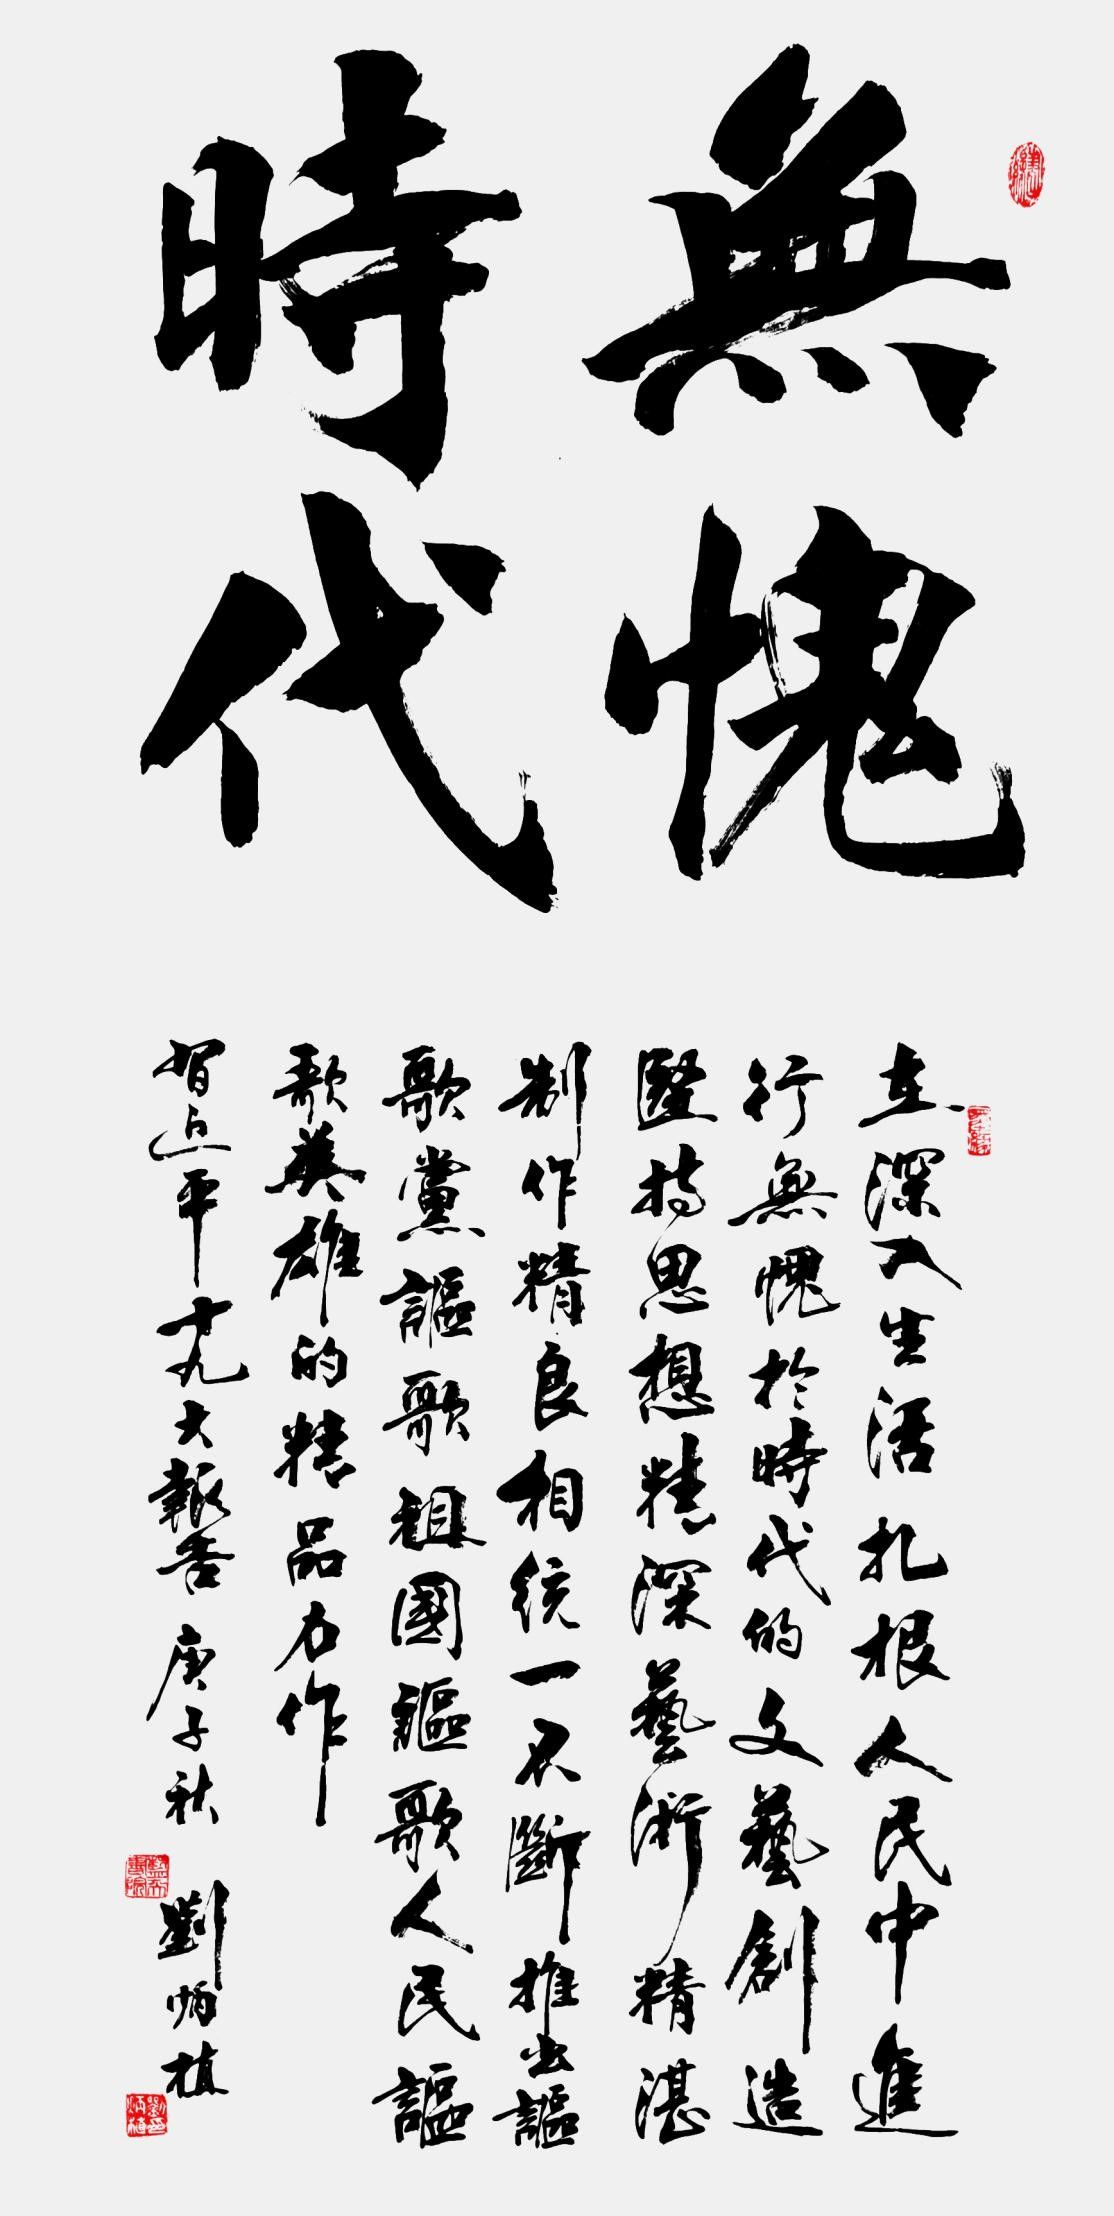 無愧
時代
在深入生活扎根人民中進
行無愧於時代的文藝創造
堅持思想精深藝術精湛
制作精良相統一不斷推出謳
歌黨謳歌祖國謳歌人民謳
歌英雄的精品力作
習近平十九大報告 庚子秋 劉炳植
劉印炳植